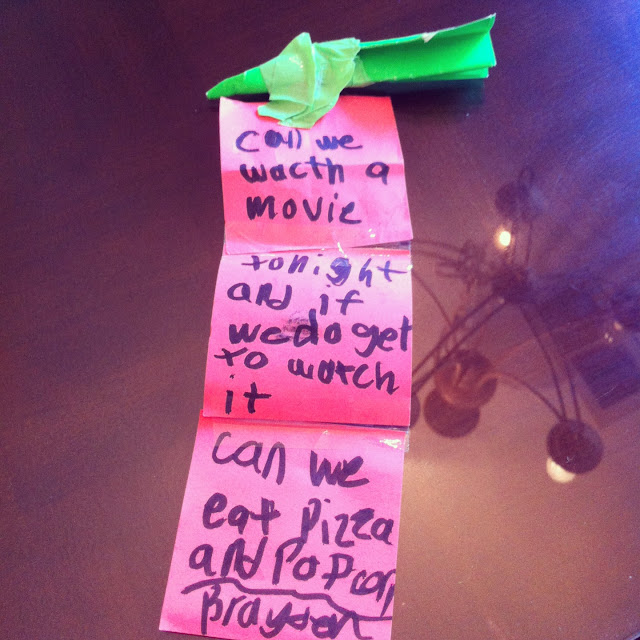 can we
wacth a
movie
tonight
and if
we do get
to watch
it
can we
eat pizza
and Popcorn
Brayden